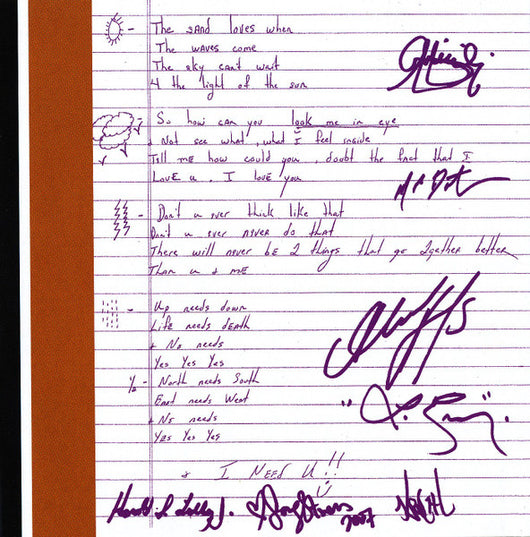 The SAND loves when
The waves come
The sky can't wait
4 the light of the sun
So how can you look me in eye
+ Not see what, what I feel inside
Tell me how could you, doubt the fact that I
Love u. I love you
Don't u ever think like that
Don't u ever never do that
There will never be 2 things that go 2gether better
Than u & me
Up needs down
Life needs death
+ No needs
Yes Yes Yes
½ - North needs South
East needs West
+ No needs
Yes Yes Yes
+ I NEED U!!
2007